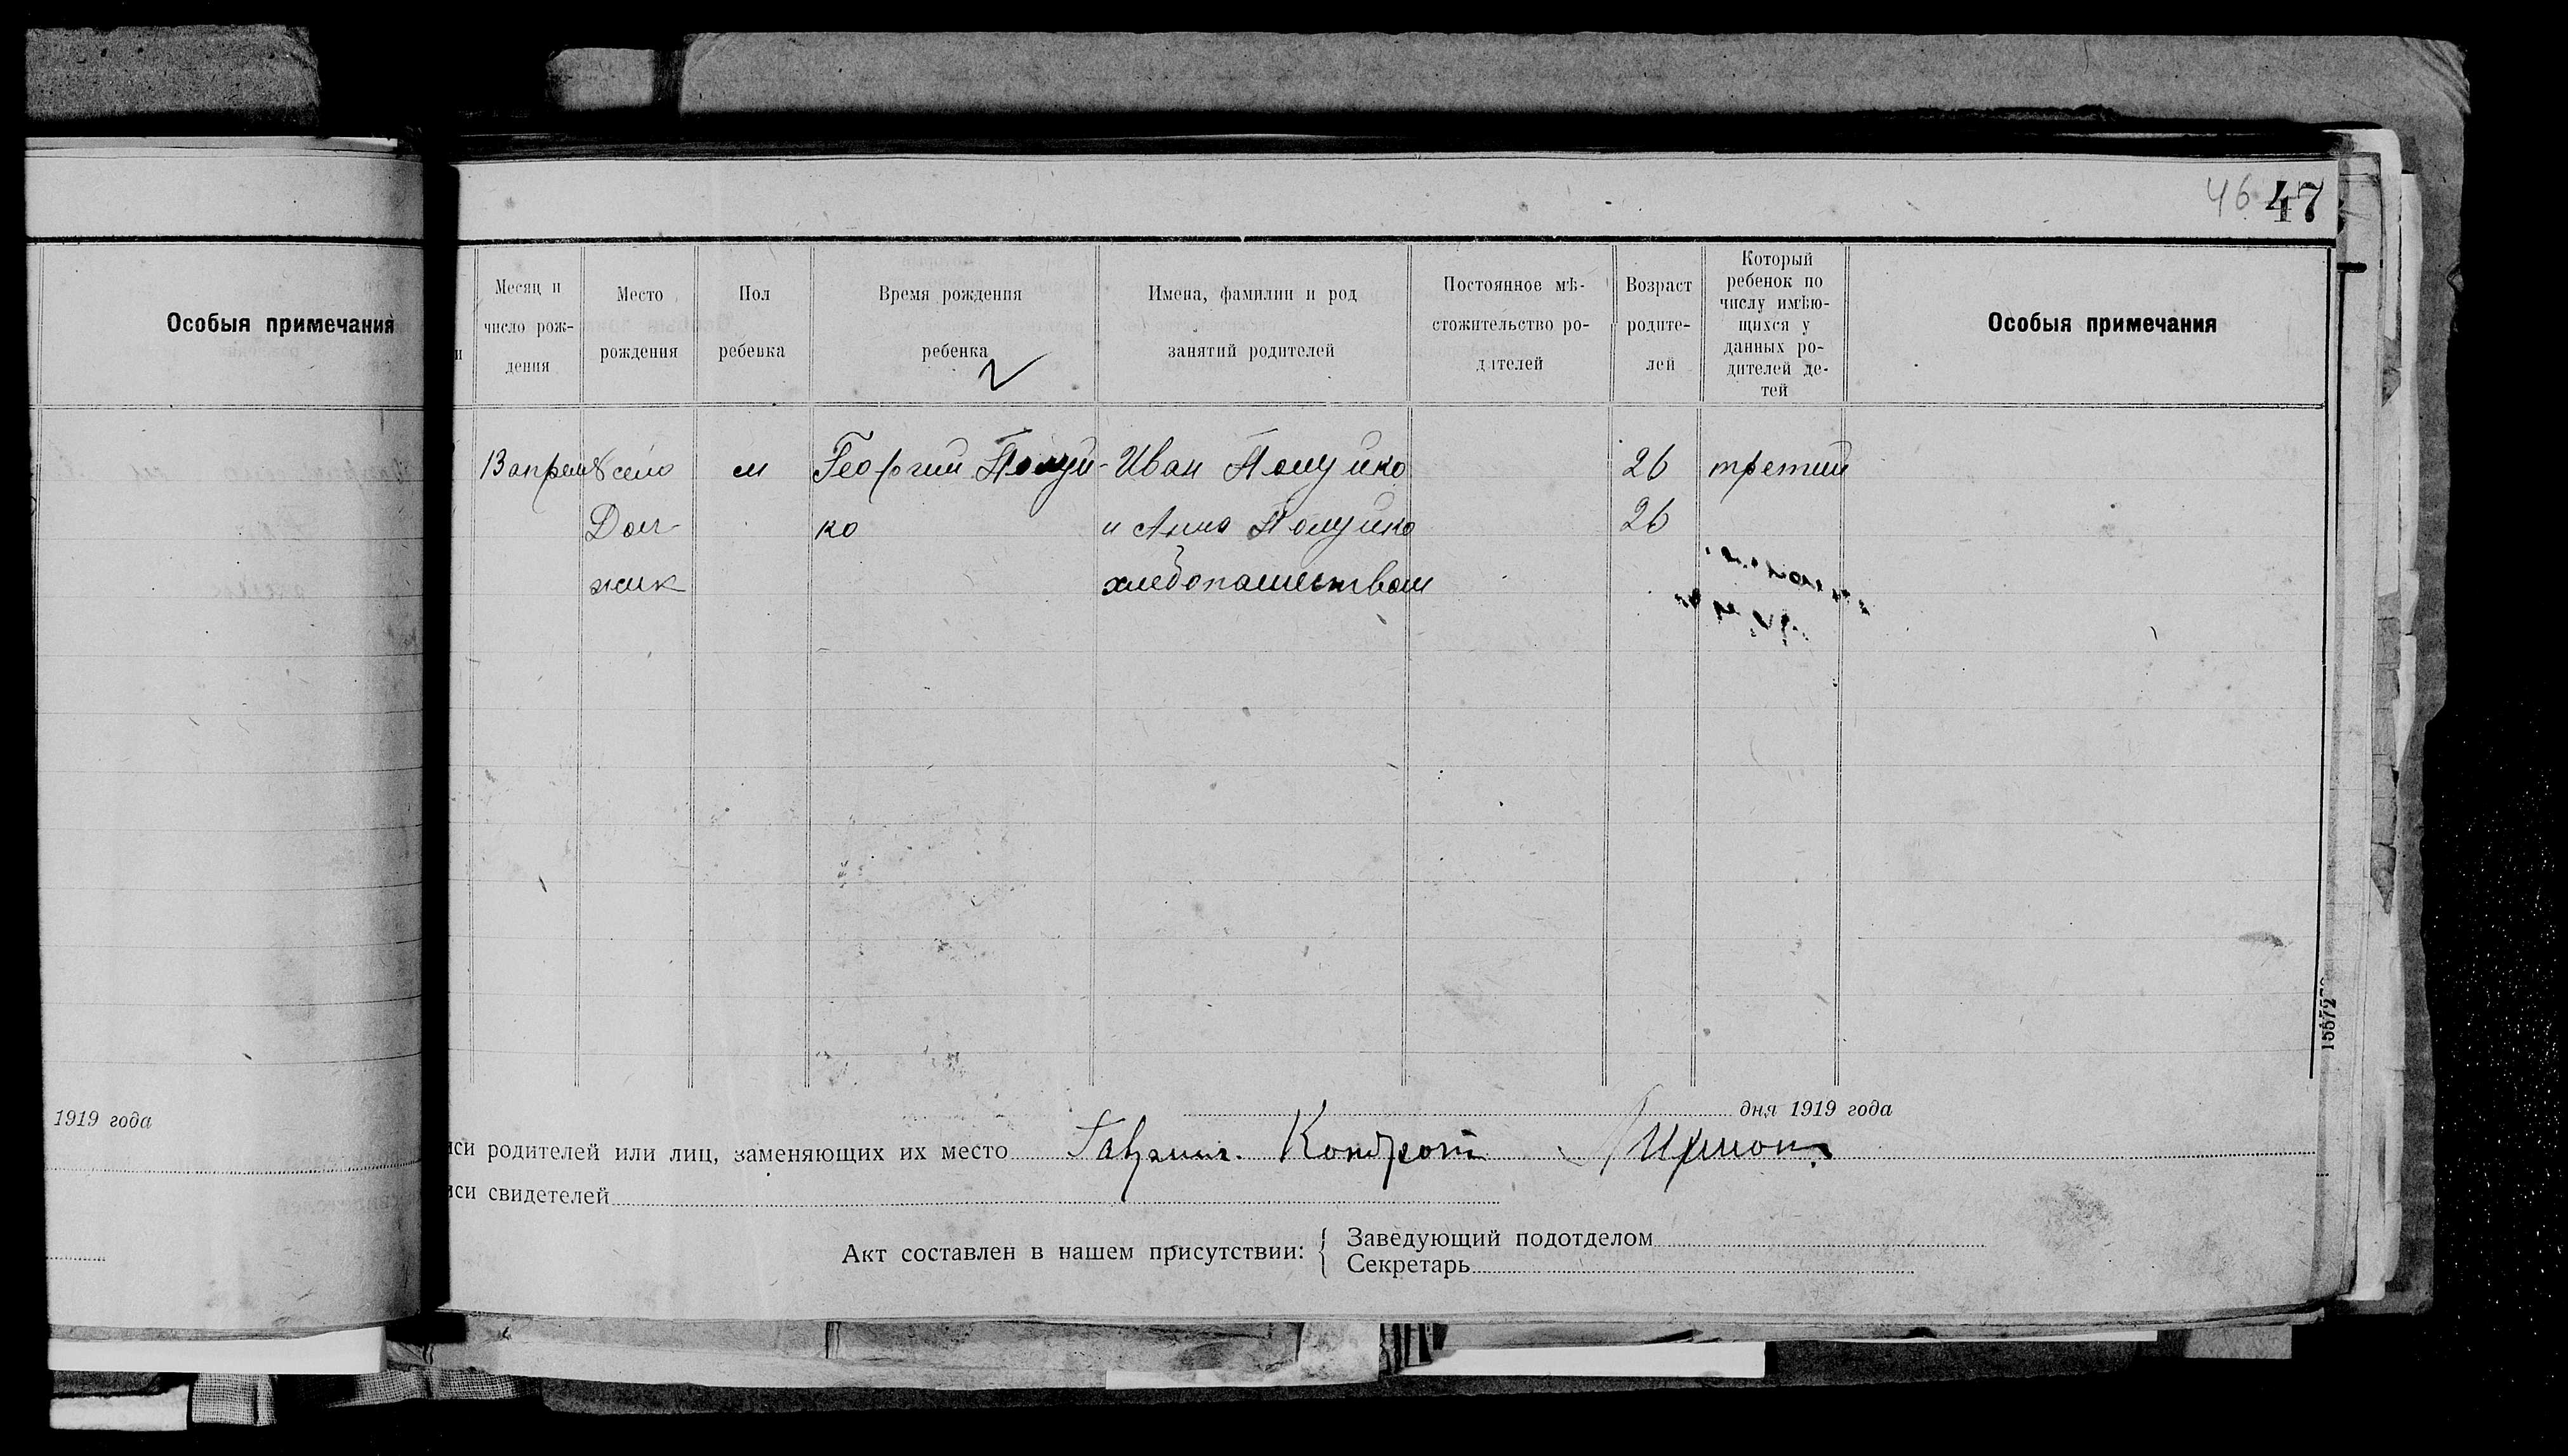 46 47
Особыя примечания
и
Месяц и число рож-дения
Место рождения
Пол ребенка
Время рождения ребенка
Имена, фамилии и род занятий родителей
Постоянное мѣ-стожительство ро-дителей
Возраст родите-лей
Который ребенок по числу имѣю-щихся у данных ро-дителей де-тей
Особыя примечания
13 апреля село м Георгий Полуй- Иван Полуйко 26 третий
Дол- ко и Анна Полуйко 26
жик хлебопашеством
15572
1919 года
дня 1919 года
иси родителей или лиц, заменяющих их место Кондрат
иси свидетелей
Акт составлен в нашем присутствии: { Заведующий подотделом
Секретарь